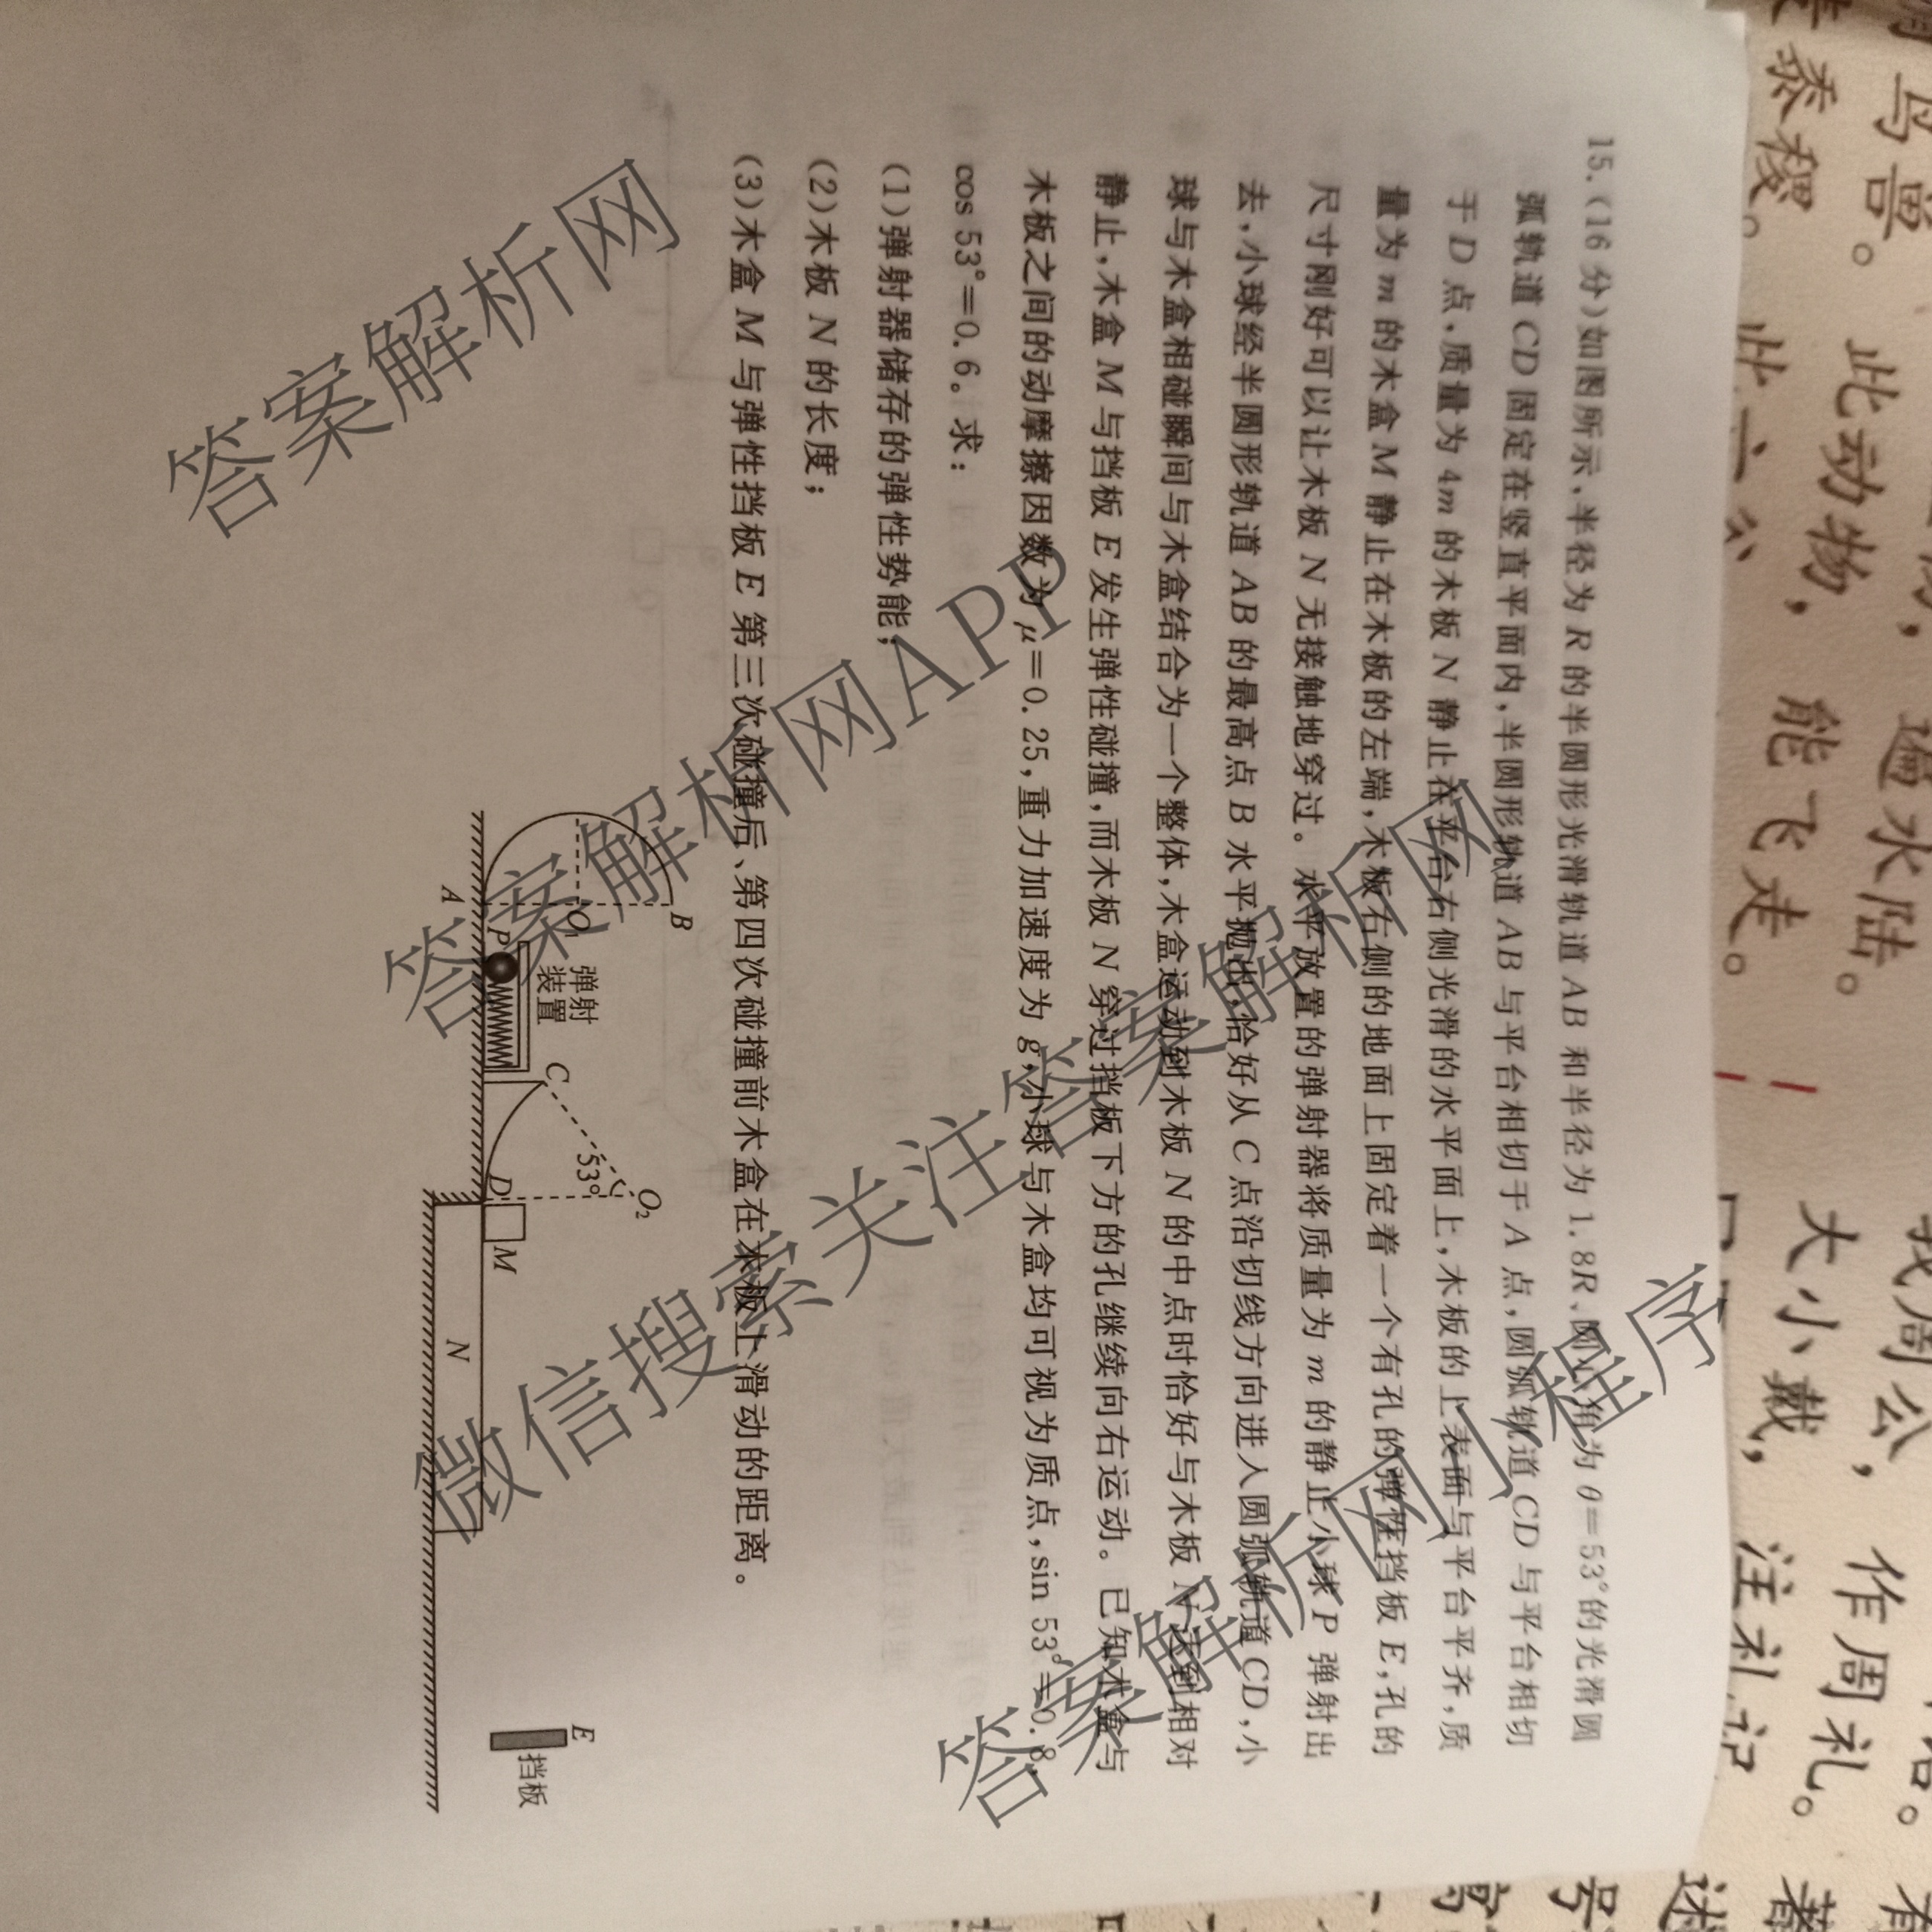 15.(16分)如图所示,半径为R的半圆形光滑轨道AB和半径为1.8R、圆心角为θ=53°的光滑圆
弧轨道CD固定在竖直平面内,半圆形轨道AB与平台相切于A点,圆弧轨道CD与平台相切
于D点,质量为4m的木板N静止在平台右侧光滑的水平面上,木板的上表面与平台平齐,质
量为m的木盒M静止在木板的左端,木板右侧的地面上固定着一个有孔的弹性挡板E,孔的
尺寸刚好可以让木板N无接触地穿过。水平放置的弹射器将质量为m的静止小球P弹射出
去,小球经半圆形轨道AB的最高点B水平抛出,恰好从C点沿切线方向进入圆弧轨道CD,小
球与木盒相碰瞬间与木盒结合为一个整体,木盒运动到木板N的中点时恰好与木板N达到相对
静止,木盒M与挡板E发生弹性碰撞,而木板N穿过挡板下方的孔继续向右运动。已知木盒与
木板之间的动摩擦因数为μ=0.25,重力加速度为g,小球与木盒均可视为质点,sin 53°=0.8,
cos 53°=0.6。求:
(1)弹射器储存的弹性势能;
(2)木板N的长度;
(3)木盒M与弹性挡板E第三次碰撞后、第四次碰撞前木盒在木板上滑动的距离。
B
O₁
A
P
弹射
装置
C
53°
O₂
D
M
N
E
挡板
答案解析网
答案解析网APP
微信搜索关注答案解析网
答案解析网小程序
鸟兽。此动物,
遍水陆。
黍稷。
此六
能飞走。
我周公,作周礼。
大小戴,注礼记